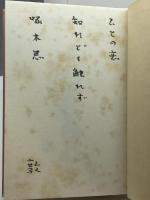 ひとの恋
知れども触れず
啄木忌